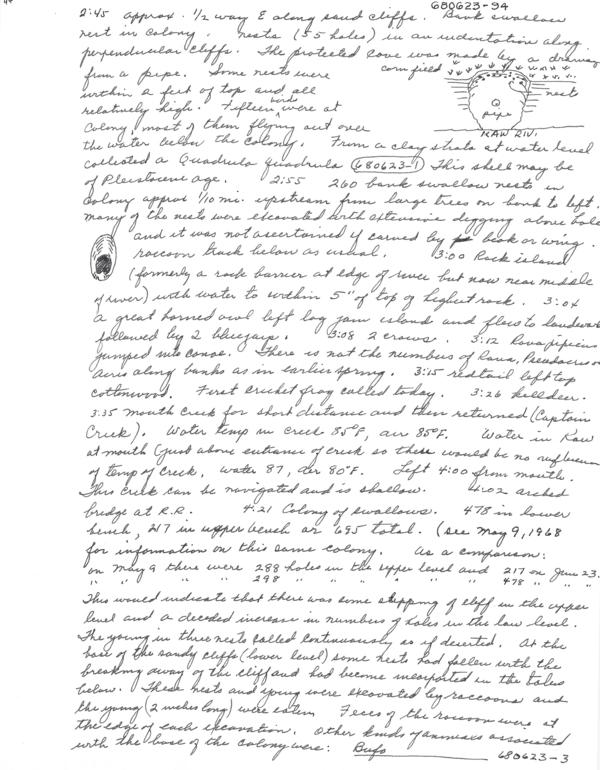 680623-94
2:45 approx. 1/2 way E along sand cliffs. Bank swallow
nest in colony. nests (55 holes) in an indentation along
perpendicular cliffs. The protected cove was made by a drainage
from a pipe. Some nests were
corn field
within a feet of top and all
nests
relatively high. Fifteen birds were at
Q
pipe
colony, most of them flying out over
KAW RIV.
the water below the colony. From a clay strata at water level
collected a Quadrula quadrula (680623-1) This shell may be
of Pleistocene age. 2:55 260 bank swallow nests in
colony approx 1/10 mi. upstream from large trees on bank to left.
many of the nests were excavated with extensive digging above hole
and it was not ascertained if carved by beak or wing.
raccoon track below as usual. 3:00 Rock island
(formerly a rock barrier at edge of river but now near middle
of river) with water to within 5" of top of highest rock. 3:04
a great horned owl left log jam island and flew to landward
followed by 2 bluejays. 3:08 2 crows. 3:12 Rana pipiens
jumped into canoe. There is not the numbers of Rana, Pseudacris or
Acris along banks as in earlier spring. 3:15 redtail left top
cottonwood. First cricket frog called today. 3:26 killdeer.
3:35 mouth creek for short distance and then returned (Captain
Creek). Water temp in creek 85°F, air 85°F. Water in Kaw
at mouth (just above entrance of creek so there would be no influence
of temp of creek, water 87, air 80°F. Left 4:00 from mouth.
This creek can be navigated and is shallow. 4:02 arched
bridge at R.R. 4:21 Colony of swallows. 478 in lower
bench, 217 in upper bench or 695 total. (see May 9, 1968
for information on this same colony. As a comparison:
on May 9 there were 288 holes in the upper level and 217 on June 23.
" " " " 298 " " " " " " 478 " " "
This would indicate that there was some slipping of cliff in the upper
level and a decided increase in numbers of holes in the low level.
The young in three nests called continuously as if deserted. At the
base of the sandy cliffs (lower level) some nests had fallen with the
breaking away of the cliff and had become incorporated in the talus
below. These nests and young were excavated by raccoons and
the young (2 inches long) were eaten. Feces of the raccoon were at
the edge of each excavation. Other kinds of animals associated
with the base of the colony were: Bufo 680623-3